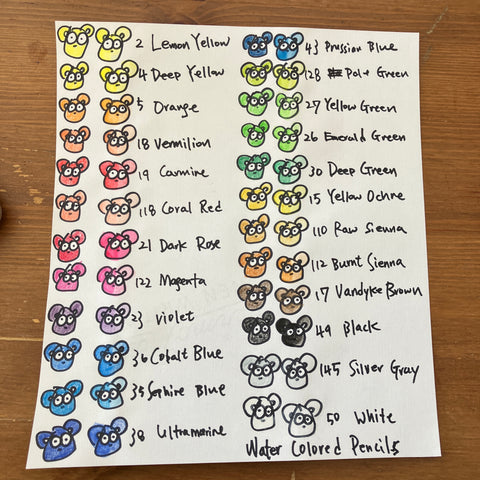 2 Lemon Yellow
4 Deep Yellow
5 Orange
18 Vermilion
19 Carmine
118 Coral Red
21 Dark Rose
122 Magenta
23 Violet
36 Cobalt Blue
35 Saphire Blue
38 Ultramarine
43 Prussian Blue
128 Green
27 Yellow Green
26 Emerald Green
30 Deep Green
15 Yellow Ochre
110 Raw Sienna
112 Burnt Sienna
17 Vandyke Brown
49 Black
145 Silver Gray
50 White
Water Colored Pencils